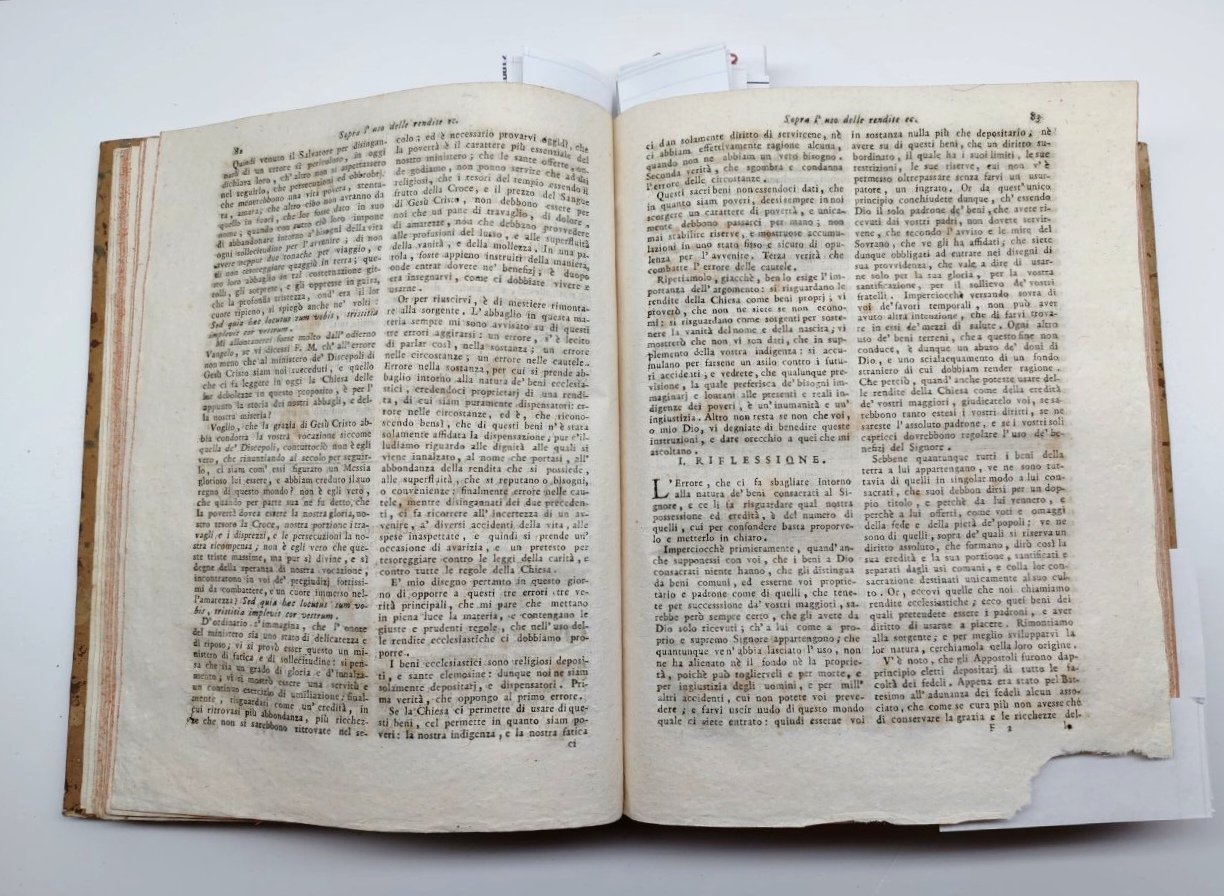 82
Sopra l' uso delle rendite ec.
Quindi venuto il Salvatore per disingan-
narli di un errore sì pericoloso, in oggi
dichiara loro, ch' altro non si aspettassero
nel seguirlo, che persecuzioni ed obbrobrj,
che menerebbono una vita povera, stenta-
ta, amara; che altro cibo non avranno da
quello in fuori, che lor fosse dato in suo
nome; quando con tutto ciò loro impone
di abbandonare intorno a' bisogni della vita
ogni sollecitudine per l' avvenire; di non
avere neppur due tonache per viaggio, e
di non tesoreggiare quaggiù in terra; que-
sto loro abbaglio in tal costernazione git-
tolli, gli sorprese, e gli oppresse in guisa,
che la profonda tristezza, ond' era il lor
cuore ripieno, si spiegò anche ne' volti:
Sed quia hæc locutus sum vobis, tristitia
implevit cor vestrum.
Mi allontanerei forse molto dall' odierno
Vangelo, se vi dicessi F. M. ch' all' errore
non meno che al ministero de' Discepoli di
Gesù Cristo siam noi succeduti, e quello
che ci fa leggere in oggi la Chiesa delle
lor debolezze in questo proposito, è per l'
appunto la storia dei nostri abbagli, e del-
la nostra miseria?
Voglio, che la grazia di Gesù Cristo ab-
bia condotta la vostra vocazione siccome
quella de' Discepoli, contuttociò non è egli
vero, che rinunziando al secolo per seguir-
lo, ci siam com' essi figurato un Messia
glorioso lui essere, e abbiam creduto il suo
regno di questo mondo? non è egli vero,
che quando per parte sua ne fu detto, che
la povertà dovea essere la nostra gloria, no-
stro tesoro la Croce, nostra porzione i tra-
vagli e i disprezzi, e le persecuzioni la no-
stra ricompensa; non è egli vero che que-
ste triste massime, ma pur sì divine, e sì
degne della speranza di nostra vocazione,
incontrarono in voi de' pregiudizj fortissi-
mi da combattere, e un cuore immerso nel-
l'amarezza? Sed quia hæc locutus sum vo-
bis, tristitia implevit cor vestrum.
D' ordinario s'immagina, che l' onore
del ministero sia uno stato di delicatezza e
di riposo; vi si provò esser questo un mi-
nistero di fatica e di sollecitudine: si pen-
sa che sia un grado di gloria e d'innalza-
mento; vi si mostrò essere una servitù e
un continuo esercizio di umiliazione; final-
mente, risguardasi come un' eredità, in
cui ritrovasi più abbondanza, più ricchez-
ze che non si sarebbono ritrovate nel se-
colo; ed è necessario provarvi oggidì, che
la povertà è il carattere più essenziale del
nostro ministero; che le sante offerte, on-
de godiamo, non ponno servire che ad usi
religiosi, che i tesori del tempio essendo il
frutto della Croce, e il prezzo del Sangue
di Gesù Cristo, non debbono essere per
noi che un pane di travaglio, di dolore,
di amarezze, non che debbano provvedere
alle profusioni del lusso, e alle superfluità
della vanità, e della mollezza. In una pa-
rola, foste appieno instruiti della maniera,
onde entrar dovete ne' benefizj; è duopo
ora insegnarvi, come ci dobbiate vivere e
usarne.
Or per riuscirvi, è di mestiere rimonta-
re alla sorgente. L' abbaglio in questa ma-
teria sempre mi sono avvisato su di questi
tre errori aggirarsi: un errore, s' è lecito
di parlar così, nella sostanza; un errore
nelle circostanze; un errore nelle cautele.
Errore nella sostanza, per cui si prende ab-
baglio intorno alla natura de' beni ecclesia-
stici, credendoci proprietarj di una rendi-
ta, di cui siam puramente dispensatori: er-
rore nelle circostanze, ed è, che (ricono-
scendo bensì, che di questi beni n' è stata
solamente affidata la dispensazione, pur c'il-
ludiamo riguardo alle dignità alle quali si
viene innalzato, al nome che portasi, all'
abbondanza della rendita che si possiede,
alle superfluità, che si reputano o bisogni,
o convenienze: finalmente errore nelle cau-
tele, mentre disingannati dei due preceden-
ti, ci fa ricorrere all' incertezza di un av-
venire, a' diversi accidenti della vita, alle
spese inaspettate, e quindi si prende un'
occasione di avarizia, e un pretesto per
tesoreggiare contro le leggi della carità, e
contro tutte le regole della Chiesa.
E' mio disegno pertanto in questo gior-
no di opporre a questi tre errori tre ve-
rità principali, che mi pare che mettano
in piena luce la materia, e contengano le
giuste e prudenti regole, che nell' uso del-
le rendite ecclesiastiche ci dobbiamo pro-
porre.
I beni ecclesiastici sono religiosi deposi-
ti, e sante elemosine: dunque noi ne siam
solamente depositarj, e dispensatori. Pri-
ma verità, che oppongo al primo errore.
Se la Chiesa ci permette di usare di que-
sti beni, cel permette in quanto siam po-
veri: la nostra indigenza, e la nostra fatica
ci
Sopra l' uso delle rendite ec.
83
ci dan solamente diritto di servircene, nè
ci abbiam effettivamente ragione alcuna,
quando non ne abbiam un vero bisogno.
Seconda verità, che sgombra e condanna
l'errore delle circostanze.
Questi sacri beni non essendoci dati, che
in quanto siam poveri, deesi sempre in noi
scorgere un carattere di povertà, e unica-
mente debbono passarci per mano; non
mai stabilire riserve, e mostruose accumu-
lazioni in uno stato fisso e sicuro di opu-
lenza per l' avvenire. Terza verità che
combatte l' errore delle cautele.
Ripetiamolo, giacchè, ben lo esige l'im-
portanza dell' argomento: si risguardano le
rendite della Chiesa come beni proprj; vi
proverò, che non ne siete se non econo-
mi: si risguardano come sorgenti per soste-
nere la vanità del nome e della nascita; vi
mostrerò che non vi son dati, che in sup-
plemento della vostra indigenza: si accu-
mulano per farsene un asilo contro i futu-
ri accidenti; e vedrete, che qualunque pre-
visione, la quale preferisca de' bisogni im-
maginarj e lontani alle presenti e reali in-
digenze dei poveri, è un'inumanità e un'
ingiustizia. Altro non resta se non che voi,
o mio Dio, vi degniate di benedire queste
instruzioni, e dare orecchio a quei che mi
ascoltano.
I. RIFLESSIONE.
L'Errore, che ci fa sbagliare intorno
alla natura de' beni consacrati al Si-
gnore, e ce li fa risguardare qual nostra
possessione ed eredità, è del numero di
quelli, cui per confondere basta proporve-
lo e metterlo in chiaro.
Imperciocchè primieramente, quand'an-
che supponessi con voi, che i beni a Dio
consacrati niente hanno, che gli distingua
da beni comuni, ed esserne voi proprie-
tario e padrone come di quelli, che tene-
te per successione da' vostri maggiori, sa-
rebbe però sempre certo, che gli avete da
Dio solo ricevuti; ch' a lui come a pro-
prio e supremo Signore appartengono; che
quantunque ven' abbia lasciato l' uso, non
ne ha alienato nè il fondo nè la proprie-
tà, poichè può toglierveli e per morte, e
per ingiustizia degli uomini, e per mill'
altri accidenti, cui non potete voi preve-
dere; e farvi uscir nudo di questo mondo
quale ci siete entrato: quindi esserne voi
in sostanza nulla più che depositario, nè
avere su di questi beni, che un diritto su-
bordinato, il quale ha i suoi limiti, le sue
restrizioni, le sue riserve, cui non v' è
permesso oltrepassare senza farvi un usur-
patore, un ingrato. Or da quest' unico
principio conchiudete dunque, ch' essendo
Dio il solo padrone de' beni, che avete ri-
cevuti da vostri padri, non dovete servir-
vene, che secondo l' avviso e le mire del
Sovrano, che ve gli ha affidati; che siete
dunque obbligati ad entrare nei disegni di
sua provvidenza, che vale a dire di usar-
ne solo per la sua gloria, per la vostra
santificazione, per il sollievo de' vostri
fratelli. Imperciocchè versando sovra di
voi de' favori temporali, non può aver
avuto altra intenzione, che di farvi trova-
re in essi de' mezzi di salute. Ogni altro
uso de' beni terreni, che a questo fine non
conduce, è dunque un abuso de' doni di
Dio, e uno scialacquamento di un fondo
straniero di cui dobbiam render ragione.
Che perciò, quand' anche poteste usare del-
le rendite della Chiesa come della eredità
de' vostri maggiori, giudicatelo voi, se sa-
rebbono tanto estesi i vostri diritti, se ne
sareste l'assoluto padrone, e se i vostri soli
capricci dovrebbono regolare l' uso de' be-
nefizj del Signore.
Sebbene quantunque tutti i beni della
terra a lui appartengano, ve ne sono tut-
tavia di quelli in singolar modo a lui con-
sacrati, che suoi debbon dirsi per un dop-
pio titolo, e perchè da lui vennero, e
perchè a lui offerti, come voti e omaggi
della fede e della pietà de' popoli: ve ne
sono di quelli, sopra de' quali si riserva un
diritto assoluto, che formano, dirò così la
sua eredità e la sua porzione, santificati e
separati dagli usi comuni, e colla lor con-
sacrazione destinati unicamente al suo cul-
to. Or, eccovi quelle che noi chiamiamo
rendite ecclesiastiche; ecco quei beni dei
quali pretendete essere i padroni, e aver
diritto di usarne a piacere. Rimontiamo
alla sorgente; e per meglio svilupparvi la
lor natura, cerchiamola nella loro origine.
V' è noto, che gli Appostoli furono dap-
principio eletti depositarj di tutte le fa-
coltà dei fedeli. Appena era stato pel Bat-
tesimo all' adunanza dei fedeli alcun asso-
ciato, che come se cura più non avesse che
di conservare la grazia e le ricchezze del-
F 2